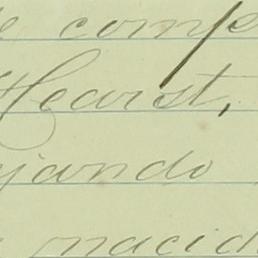 e comp
Hearst,
jando
nacid